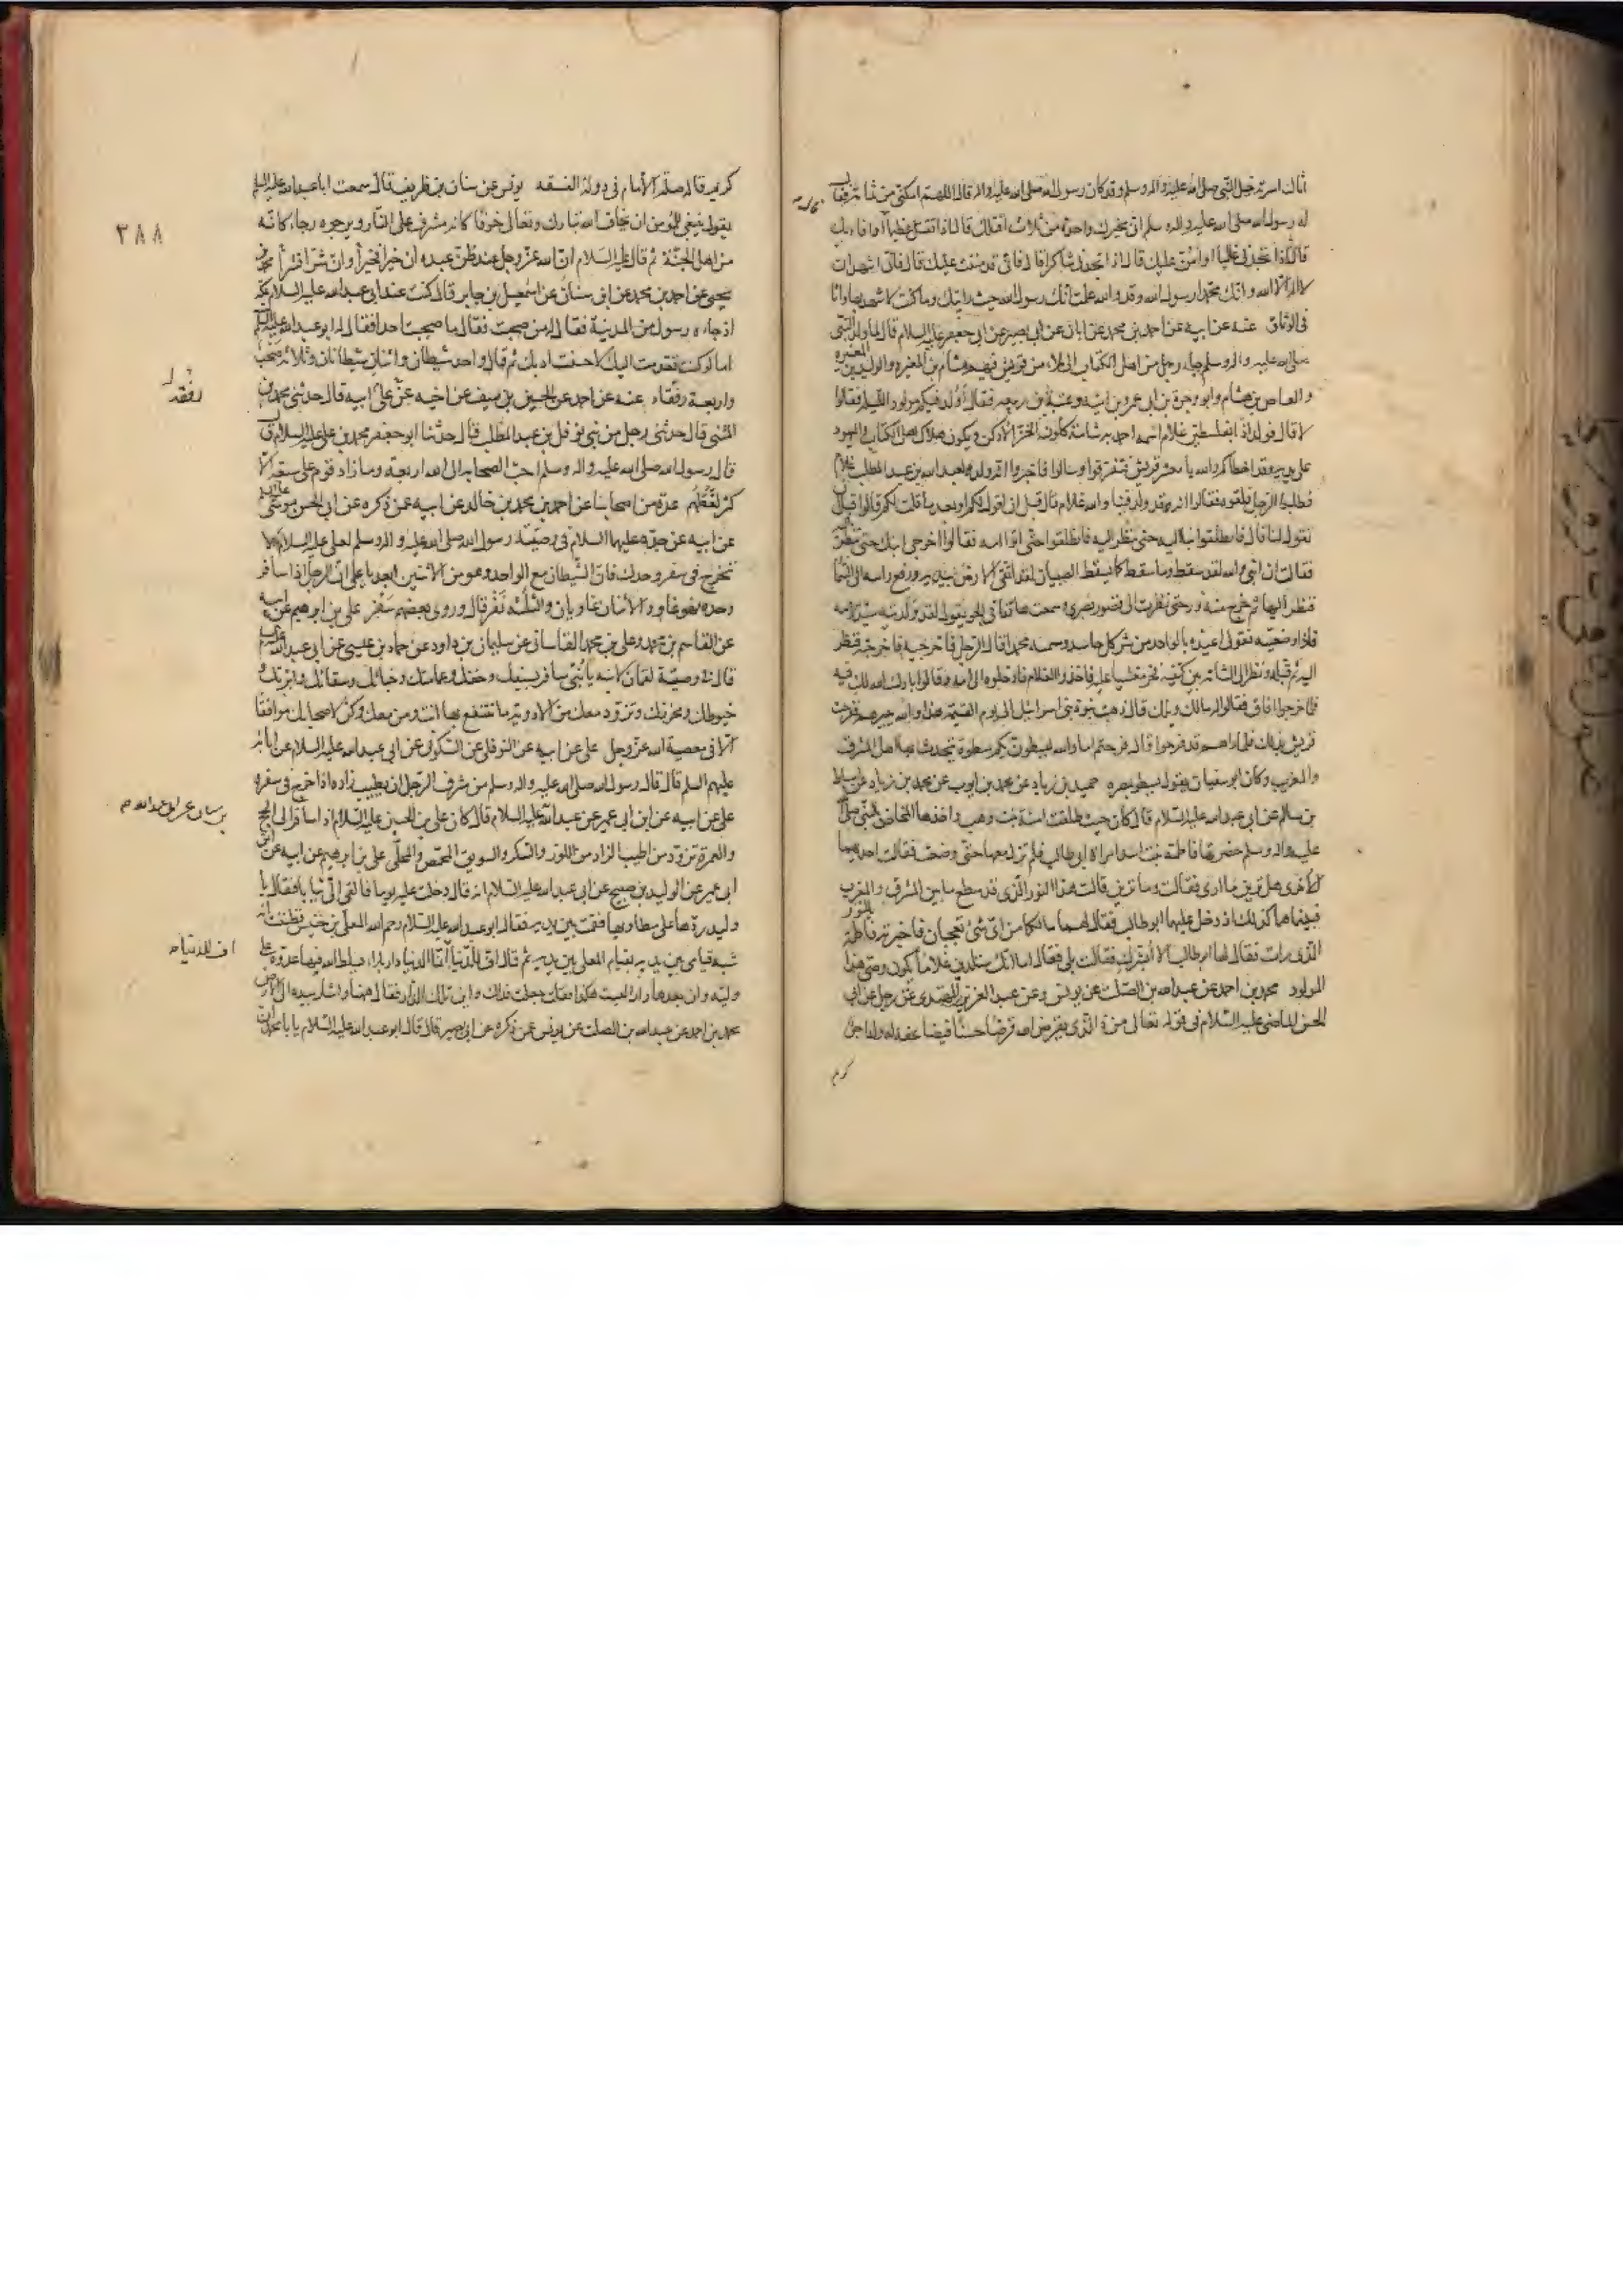 أثال اسرته خيل النبي صلى الله عليه واله وسلم وقد كان رسول الله صلى الله عليه واله قال اللهم امكني من ثمامة فقال
له رسول الله صلى الله عليه واله وسلم اني مخيرك واحدة من ثلاث اقتلك قال اذا تقتل عظيما او افاديك
قال اذا تجدني غاليا او امن عليك قال اذا تجدني شاكرا قال فاني قد مننت عليك قال فاني اشهد ان
لا اله الا الله وانك محمد رسول الله وقد والله علمت انك رسول الله حيث رايتك وما كنت لاشهد بها وانا
في الوثاق عنه عن ابيه عن احمد بن محمد عن ابان عن ابي بصير عن ابي جعفر عليه السلام قال لما ولد النبي
صلى الله عليه واله وسلم جاء رجل من اهل الكتاب الى ملاء من قريش فيهم هشام بن المغيرة والوليد بن المغيرة
والعاص بن هشام وابو وجرة بن ابي عمرو بن امية وعتبة بن ربيعه فقال أولد فيكم مولود الليلة فقالوا
لا قال فولد اذا بفلسطين غلام اسمه احمد به شامة كلون الخز الادكن ويكون هلاك اهل الكتاب واليهود
على يديه وقد اخطاكم والله يا معشر قريش فتفرقوا وسالوا فاخبروا انه ولد لعبد الله بن عبد المطلب غلام
فطلبوا الرجل فلقوه فقالوا انه قد ولد فينا والله غلام قال قبل ان اقول لكم او بعد ما قلت لكم قالوا قبل ان
تقول لنا قال فانطلقوا بنا اليه حتى ننظر اليه فانطلقوا حتى اتوا امه فقالوا اخرجي ابنك حتى ننظر اليه
فقالت ان ابني والله لقد سقط وما سقط كما يسقط الصبيان لقد اتقى الارض بيديه ورفع راسه الى السما
فنظر اليها ثم خرج منه نور حتى نظرت الى قصور بصرى وسمعت هاتفا في الجو يقول لقد ولدتيه سيد الامه
فاذا وضعتيه فقولي اعيذه بالواحد من شر كل حاسد وسميه محمدا قال الرجل فاخرجيه فاخرجته فنظر
اليه ثم قلبه ونظر الى الشامة بين كتفيه فخر مغشيا عليه فاخذوا الغلام فادخلوه الى امه وقالوا بارك الله لك فيه
فلما خرجوا افاق فقالوا له مالك ويلك قال ذهبت نبوة بني اسرائيل الى يوم القيمة هذا والله يبيرهم ففرحت
قريش بذلك فلما راهم قد فرحوا قال فرحتم اما والله ليسطون بكم سطوة يتحدث بها اهل المشرق
والمغرب وكان ابو سفيان يقول يسطو بمصره حميد بن زياد عن محمد بن ايوب عن محمد بن زياد عن اسباط
بن سالم عن ابي عبد الله عليه السلام قال كان حيث طلقت آمنة بنت وهب واخذها المخاض بالنبي صلى الله
عليه واله وسلم حضرتها فاطمة بنت اسد امراة ابي طالب فلم تزل معها حتى وضعت فقالت احديهما
للاخرى هل ترين ما ارى فقالت وما ترين قالت هذا النور الذي قد سطع ما بين المشرق والمغرب
فبينما هما كذلك اذ دخل عليهما ابو طالب فقال لهما ما لكما من اي شئ تعجبان فاخبرته فاطمة بالنور
الذي رات فقال لها ابو طالب الا ابشرك فقالت بلى فقال اما انك ستلدين غلاما يكون وصي هذا
المولود محمد بن احمد عن عبد الله بن الصلت عن يونس وعن عبد العزيز بن المهتدى عن رجل عن ابي
الحسن الماضي عليه السلام في قوله تعالى من ذا الذي يقرض الله قرضا حسنا فيضاعفه له وله اجر
كريم
٣٨٨
كريم قال صلة الامام في دولة الفسقه يونس عن سنان بن طريف قال سمعت ابا عبد الله عليه السلم
يقول ينبغي للمؤمن ان يخاف الله تبارك وتعالى خوفا كانه مشرف على النار ويرجوه رجاء كانه
من اهل الجنة ثم قال عليه السلام ان الله عز وجل عند ظن عبده ان خيرا فخيرا وان شرا فشرا محمد بن
يحيى عن احمد بن محمد عن ابن سنان عن اسمعيل بن جابر قال كنت عند ابي عبد الله عليه السلام بمكة
اذ جاءه رسول من المدينة فقال له من صحبت فقال ما صحبت احدا فقال له ابو عبد الله عليه السلم
اما لو كنت تقدمت اليك لاحسنت ادبك ثم قال واحد شيطان واثنان شيطانان وثلاثة صحب
واربعة رفقاء عنه عن احمد عن الحسين بن سيف عن اخيه عن علي ابيه قال حدثني محمد بن
المثنى قال حدثني رجل من بني نوفل بن عبد المطلب قال حدثنا ابو جعفر محمد بن علي عليه السلام قال
قال رسول الله صلى الله عليه واله وسلم احب الصحابه الى الله اربعة وما زاد قوم على سبعة الا
كثر لغطهم عدة من اصحابنا عن احمد بن محمد بن خالد عن ابيه عمن ذكره عن ابي الحسن موسى عليه السلم
عن ابيه عن جده عليهما السلام في وصية رسول الله صلى الله عليه واله وسلم لعلي عليه السلام لا
تخرج في سفر وحدك فان الشيطان مع الواحد وهو من الاثنين ابعد يا علي ان الرجل اذا سافر
وحده فهو غاو والاثنان غاويان والثلثة نفر قال وروى بعضهم سفر علي بن ابرهيم عن ابيه
عن القاسم بن محمد وعلي بن محمد القاساني عن سليمان بن داود عن حماد بن عيسى عن ابي عبد الله عليه السلم
قال في وصية لقمان لابنه يا بني سافر بسيفك وخفك وعمامتك وخبائك وسقائك وابرتك و
خيوطك ومخرزك وتزود معك من الادوية ما تنتفع بها انت ومن معك وكن لاصحابك موافقا
الا في معصية الله عز وجل علي عن ابيه عن النوفلي عن السكوني عن ابي عبد الله عليه السلام عن ابائه
عليهم السلم قال قال رسول الله صلى الله عليه واله وسلم من شرف الرجل ان يطيب زاده اذا خرج في سفره
علي عن ابيه عن ابن ابي عمير عن عبد الله عليه السلام قال كان علي بن الحسين عليه السلام اذا سافر الى الحج
والعمرة تزود من اطيب الزاد من اللوز والسكر والسويق المحمص والمحلى علي بن ابرهيم عن ابيه عن ابن
ابي عمير عن الوليد بن صبيح عن ابي عبد الله عليه السلام انه قال دخلت عليه يوما فالقى الي ثيابا فقال يا
وليد ردها على مطاويها فقمت بين يديه فقال ابو عبد الله عليه السلام رحم الله المعلى بن خنيس فظننت انه
شبه قيامي بين يديه بقيام المعلى بين يديه ثم قال اف للدنيا انما الدنيا دار بلاء يسلط الله فيها عدوه على
وليه وان بعدها دارا ليست هكذا فقلت جعلت فداك واين تلك الدار فقال ههنا واشار بيده الى الارض
محمد بن احمد عن عبد الله بن الصلت عن يونس عمن ذكره عن ابي بصير قال قال ابو عبد الله عليه السلام يا با محمد ان
بن سنان عن ابي عبد الله م
اف للدنيا